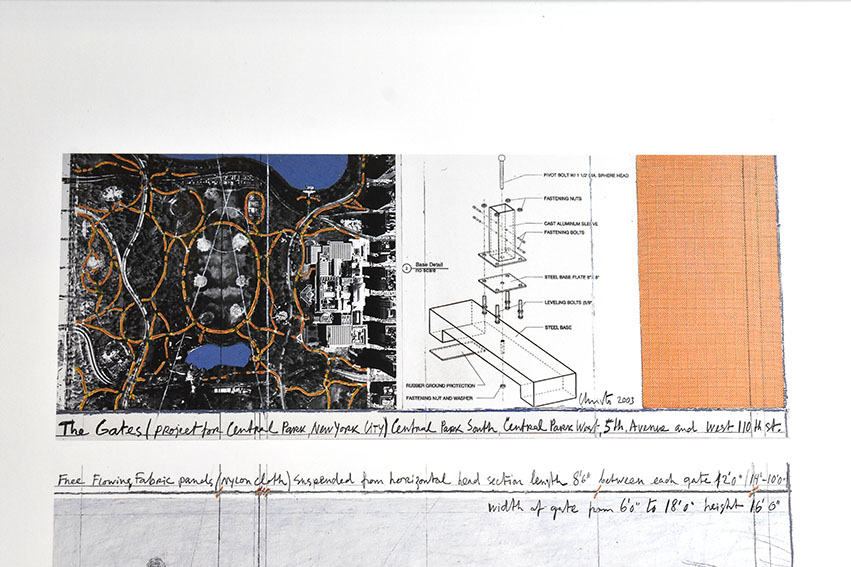 PIVOT BOLT W/ 1 1/2 DIA. SPHERE HEAD
FASTENING NUTS
CAST ALUMINUM SLEEVE
FASTENING BOLTS
2 Base Detail
no scale
STEEL BASE PLATE 8" x 8"
LEVELING BOLTS (5/8"
STEEL BASE
RUBBER GROUND PROTECTION
FASTENING NUT AND WASHER
Christo 2003
The Gates (PROJECT FOR CENTRAL PARK, NEW YORK CITY) CENTRAL PARK SOUTH, CENTRAL PARK WEST, 5th. Avenue and West 110th st.
Free Flowing Fabric panels (Nylon cloth) suspended from horizontal head section length 8'6" between each gate 12'0" (14'-10'0"
width of gate from 6'0" to 18'0" height 16'0"